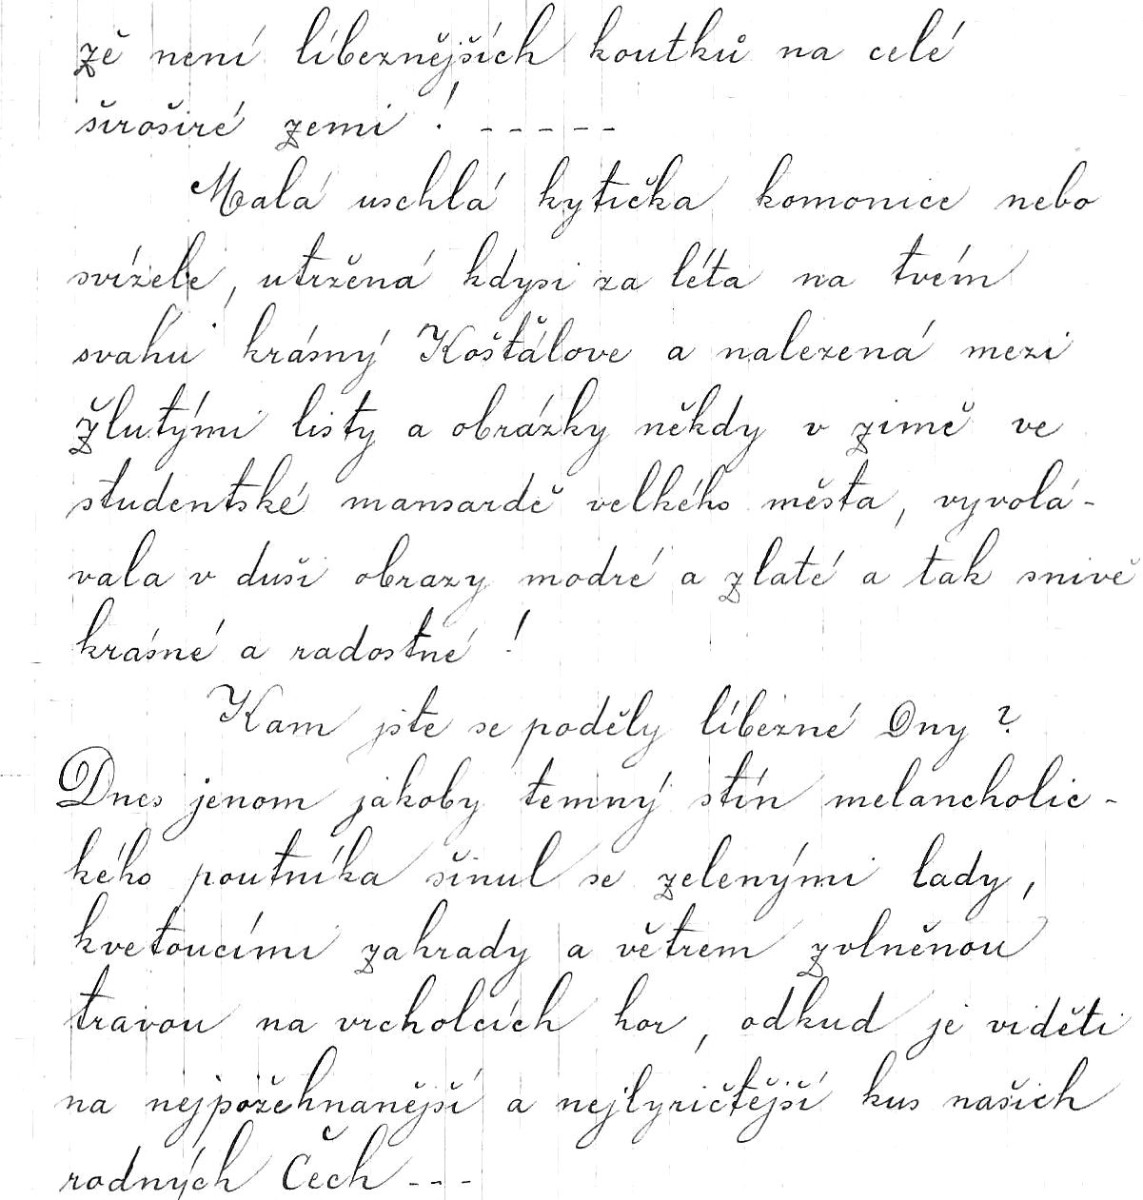 zě není líbeznějších koutků na celé
široširé zemi ! - - - - -
Malá uschlá kytička komonice nebo
svízele, utržená kdysi za léta na tvém
svahu krásný Košťálove a nalezená mezi
žlutými listy a obrázky někdy v zimě ve
studentské mansardě velkého města, vyvolá-
vala v duši obrazy modré a zlaté a tak snivě
krásné a radostné !
Kam jste se poděly líbezné Dny ?
Dnes jenom jakoby temný stín melancholic-
kého poutníka šinul se zelenými lady,
kvetoucími zahrady a větrem zvlněnou
travou na vrcholcích hor, odkud je viděti
na nejpožehnanější a nejlyričtější kus našich
rodných Čech - - -